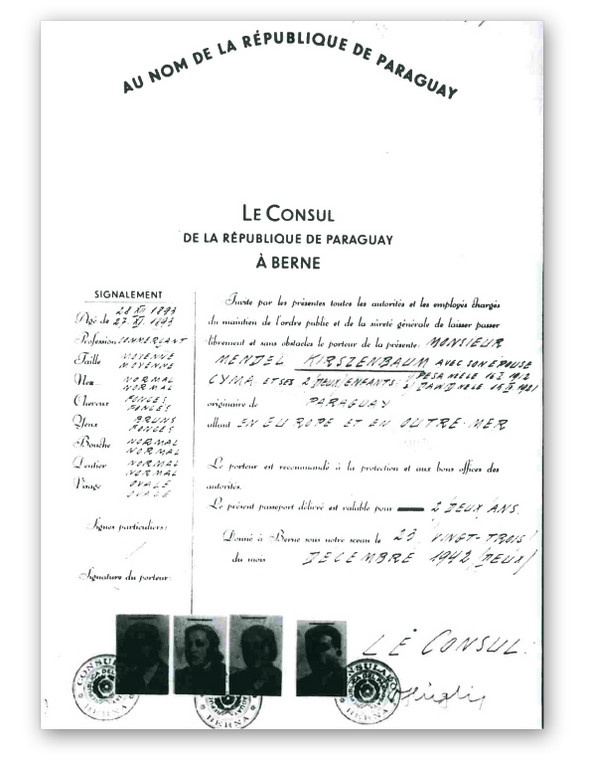 AU NOM DE LA RÉPUBLIQUE DE PARAGUAY
LE CONSUL
DE LA RÉPUBLIQUE DE PARAGUAY
À BERNE
SIGNALEMENT
28 XII 1893
Agé de 27. XI. 1893
Profession COMMERÇANT
Taille MOYENNE
MOYENNE
Nez NORMAL
NORMAL
Cheveux FONCÉS
FONCÉS
Yeux BRUNS
FONCES
Bouche NORMAL
NORMAL
Dentier NORMAL
NORMAL
Visage OVALE
OVALE
Signes particuliers:
Signature du porteur:
Invite par les présentes toutes les autorités et les employés chargés
du maintien de l'ordre public et de la sûreté générale de laisser passer
librement et sans obstacles le porteur de la présente: MONSIEUR
MENDEL KIRSZENBAUM AVEC SON ÉPOUSE
CYMA, ET SES 2/DEUX/ENFANTS:
originaire de PARAGUAY
allant EN EUROPE ET EN OUTRE-MER
Le porteur est recommandé à la protection et aux bons offices des
autorités.
Le présent passeport délivré est valable pour 2/DEUX/ANS.
Donné à Berne sous notre sceau le 23 /VINGT-TROIS/
du mois DECEMBRE 1942 /DEUX/
LE CONSUL:
CONSULADO
BERNA
BERNA
CONSULADO
BERNA